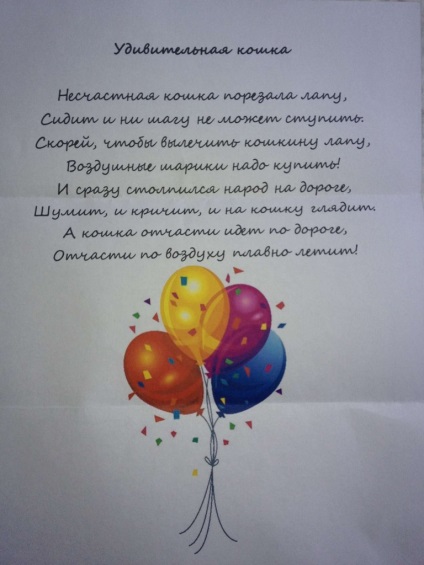 Удивительная кошка
Несчастная кошка порезала лапу,
Сидит и ни шагу не может ступить.
Скорей, чтобы вылечить кошкину лапу,
Воздушные шарики надо купить!
И сразу столпился народ на дороге,
Шумит, и кричит, и на кошку глядит.
А кошка отчасти идет по дороге,
Отчасти по воздуху плавно летит!